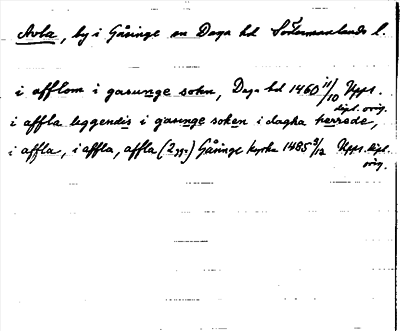 Avla, by i Gåsinge sn Daga hd Södermanlands l.
i afflom i gasunge sokn, Daga hd 1460 11/10 Upps. dipl. orig.
i affla liggendis i gasunge soken i dagha herrade,
i affla, i affla, affla (2 ggr) Gåsinge kyrka 1485 9/12 Upps. dipl. orig.